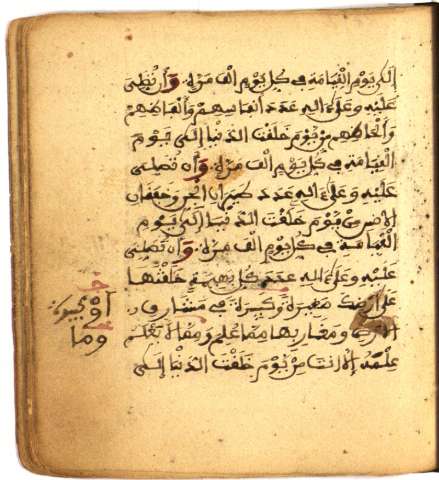 إلى يوم القيامة في كل يوم ألف مرة وأن تصلي
عليه وعلى ءاله عدد أنفاسهم وألفاظهم
وألحاظهم من يوم خلقت الدنيا إلى يوم
القيامة في كل يوم ألف مرة وأن تصلي
عليه وعلى ءاله عدد طيران الجن وخفقان
الإنس من يوم خلقت الدنيا إلى يوم
القيامة في كل يوم ألف مرة وأن تصلي
عليه وعلى ءاله عدد كل بهيمة خلقتها
على أرضك صغيرة وكبيرة في مشارق
ومغاربها مما علم ومما لا يعلم
علمه إلا أنت من يوم خلقت الدنيا إلى
أو كبيرة
وما